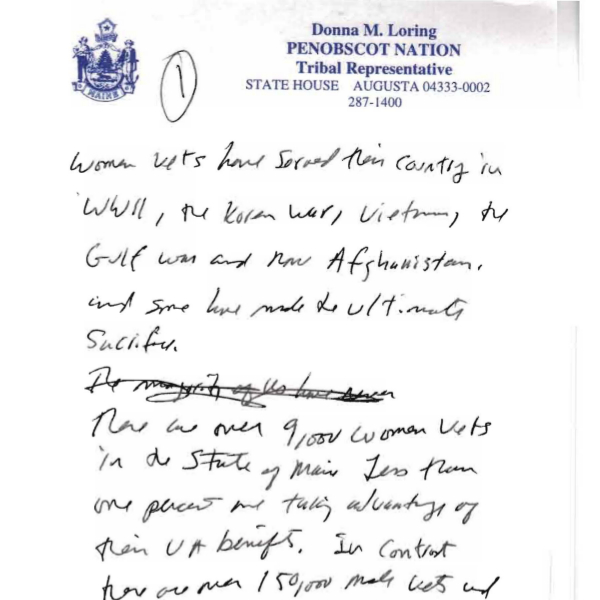 Donna M. Loring
PENOBSCOT NATION
Tribal Representative
STATE HOUSE AUGUSTA 04333-0002
287-1400
MAINE
1
Women Vets have served their country in
WWII, the Korean War, Vietnam, the
Gulf war and now Afghanistan.
and some have made the ultimate
Sacrifice.
The majority of us have never
There are over 9,000 women Vets
in the State of Maine Less than
one percent are taking advantage of
their VA benefits. In contrast
there are over 150,000 male Vets and